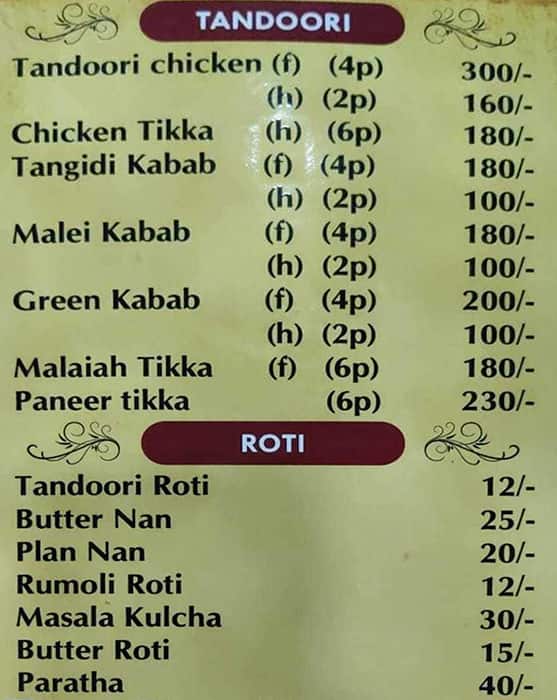 TANDOORI
Tandoori chicken (f) (4p) 300/-
(h) (2p) 160/-
Chicken Tikka (h) (6p) 180/-
Tangidi Kabab (f) (4p) 180/-
(h) (2p) 100/-
Malei Kabab (f) (4p) 180/-
(h) (2p) 100/-
Green Kabab (f) (4p) 200/-
(h) (2p) 100/-
Malaiah Tikka (f) (6p) 180/-
Paneer tikka (6p) 230/-
ROTI
Tandoori Roti 12/-
Butter Nan 25/-
Plan Nan 20/-
Rumoli Roti 12/-
Masala Kulcha 30/-
Butter Roti 15/-
Paratha 40/-